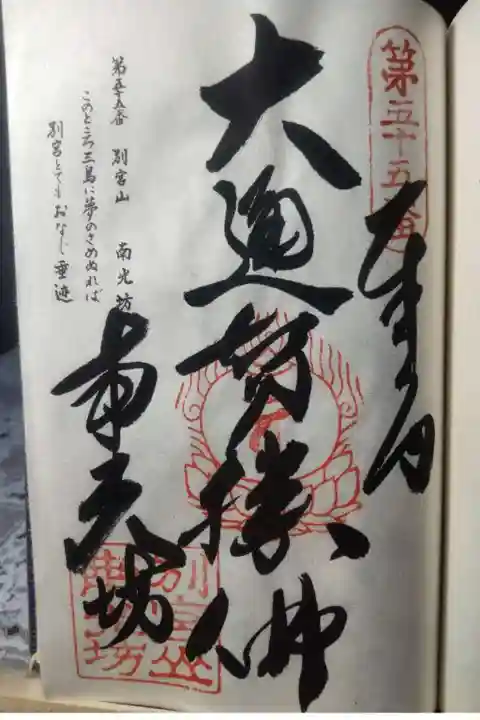 第五十五番
奉納
大通智勝佛
南光坊
別宮山
南光坊
第五十五番　別宮山　南光坊
このところ三島に夢のさめぬれば
別宮とても おなじ垂迹